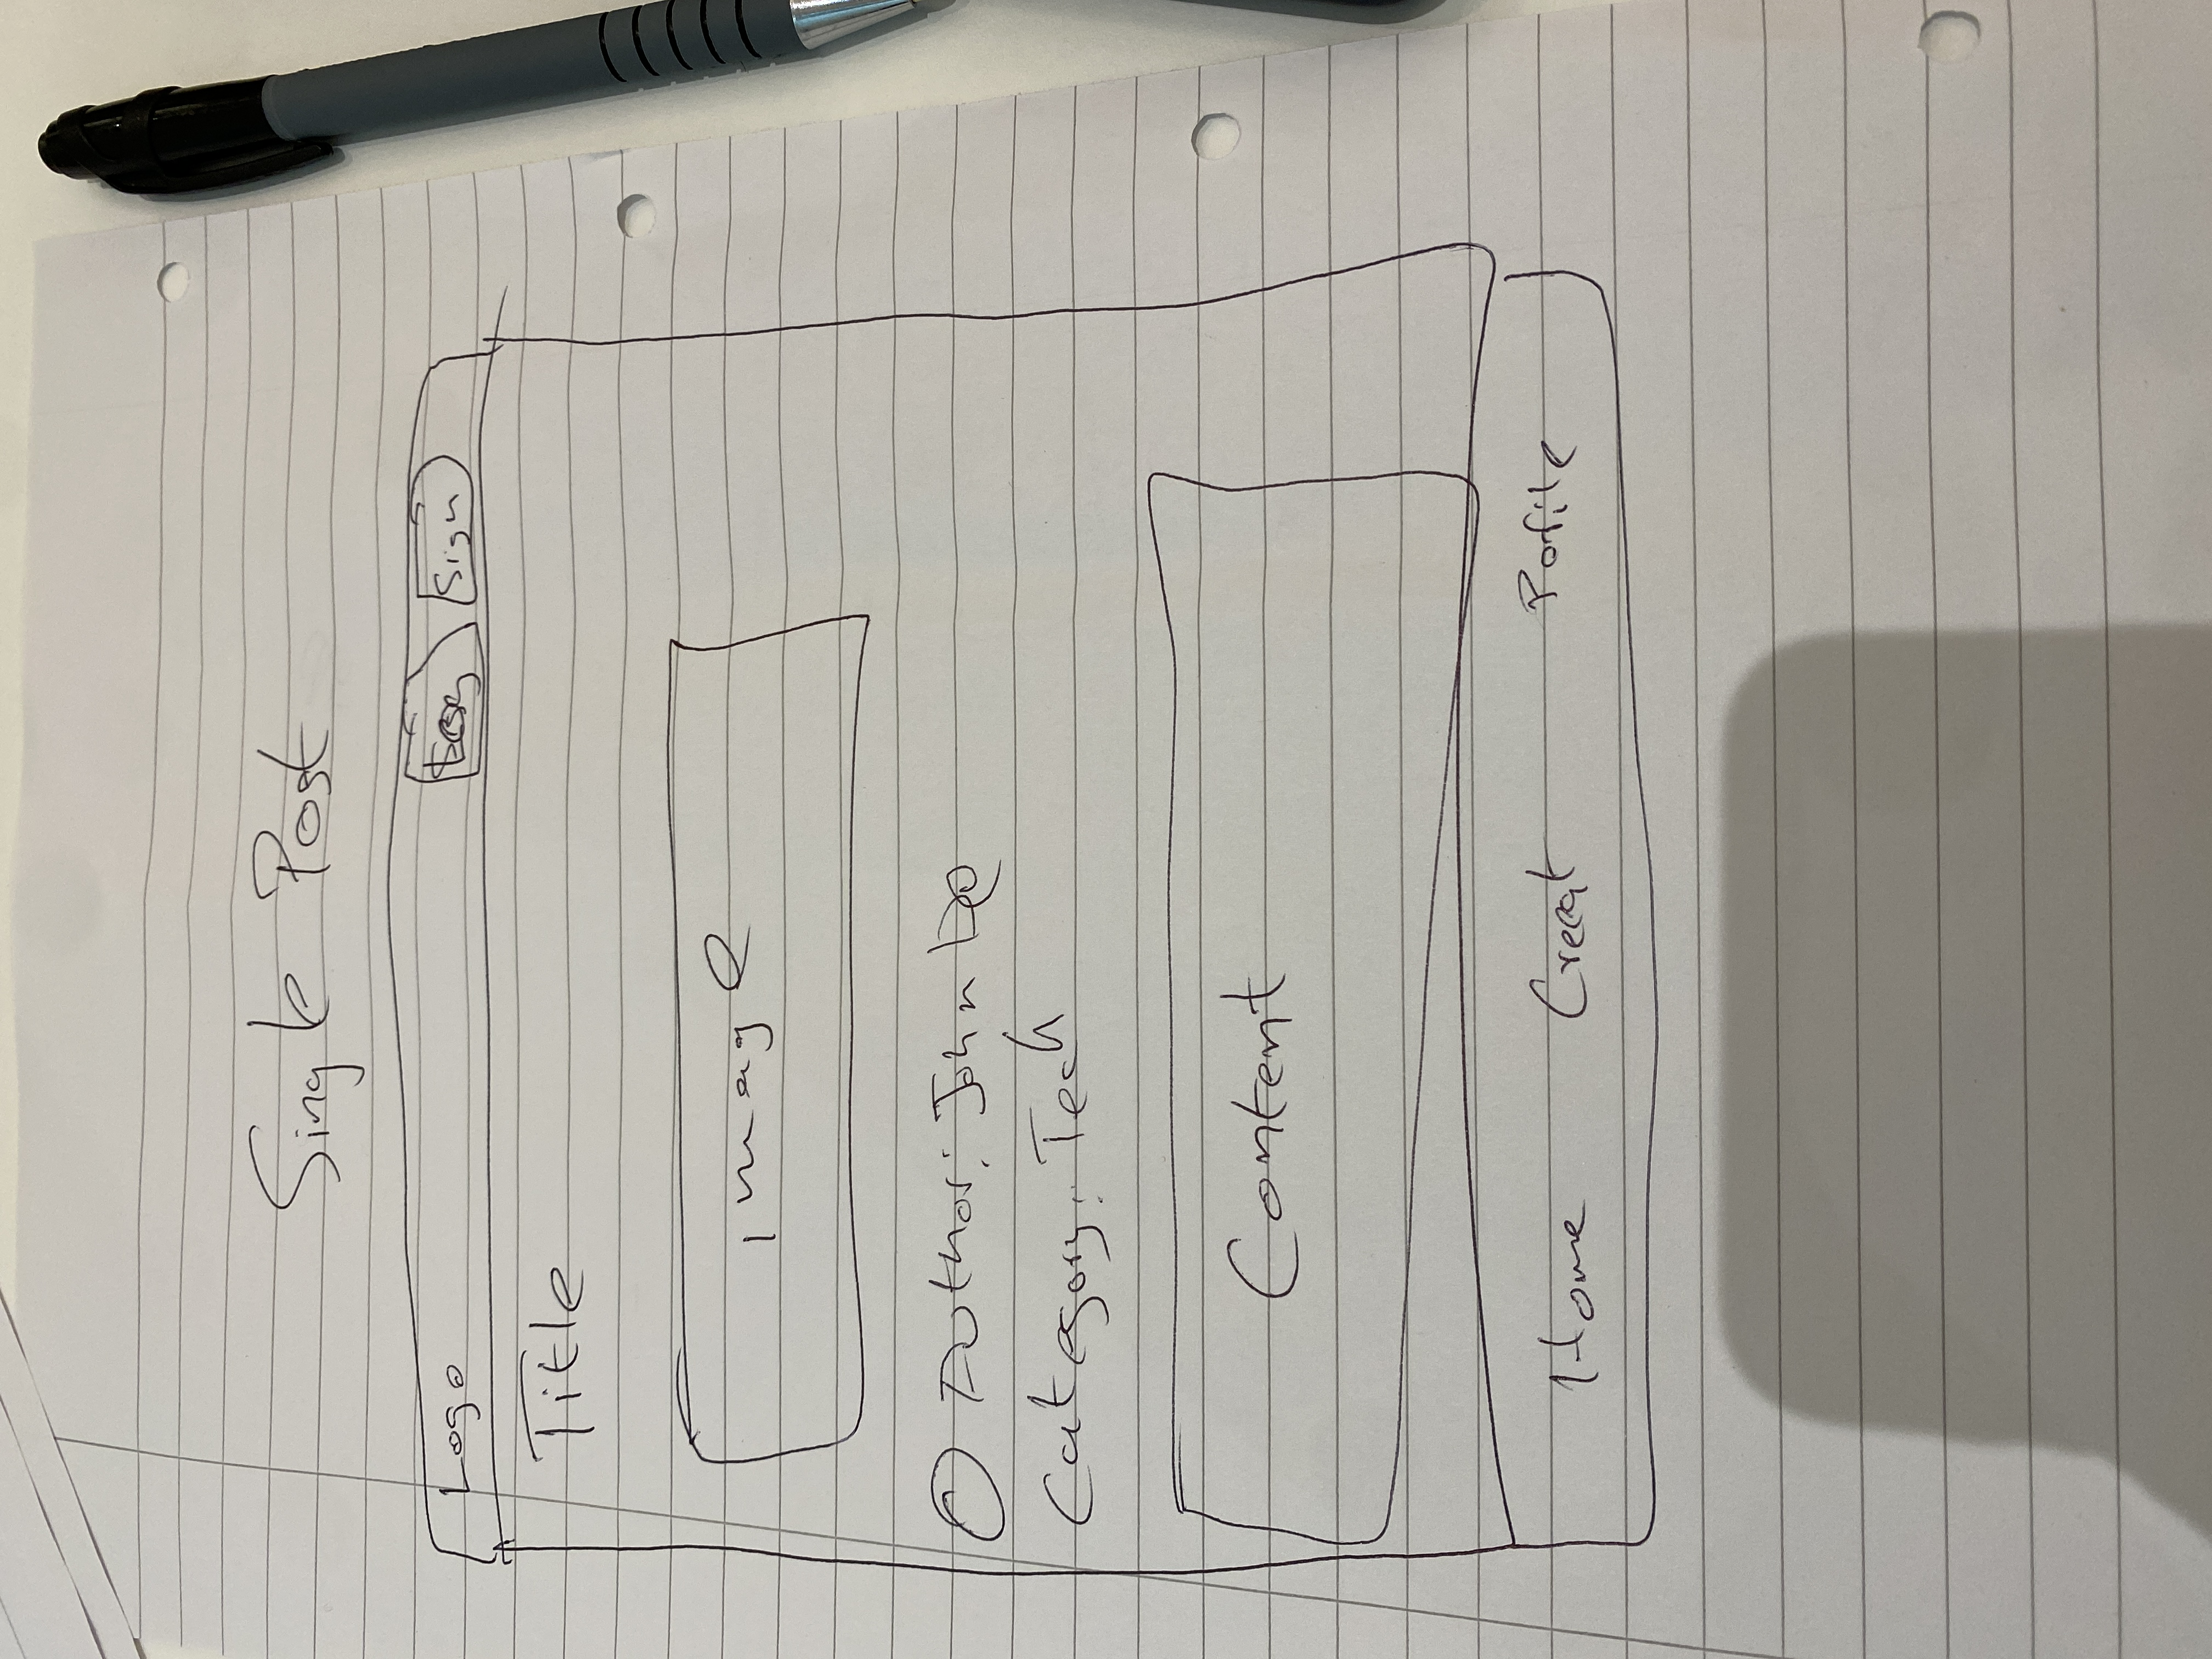 Single Post
Logo Sign
Title
image
Author: John Do
Category: Tech
Content
Home Creat Porfile